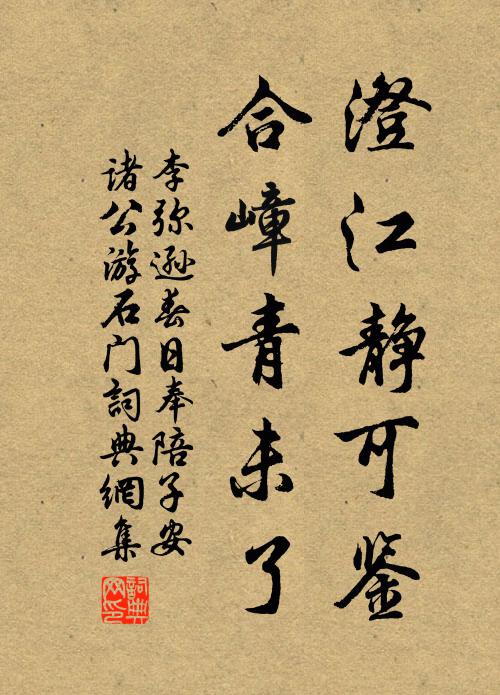 澄江静可鉴
合嶂青未了
李弥逊春日奉陪子安
诸公游石门詞典網集
詞典网印